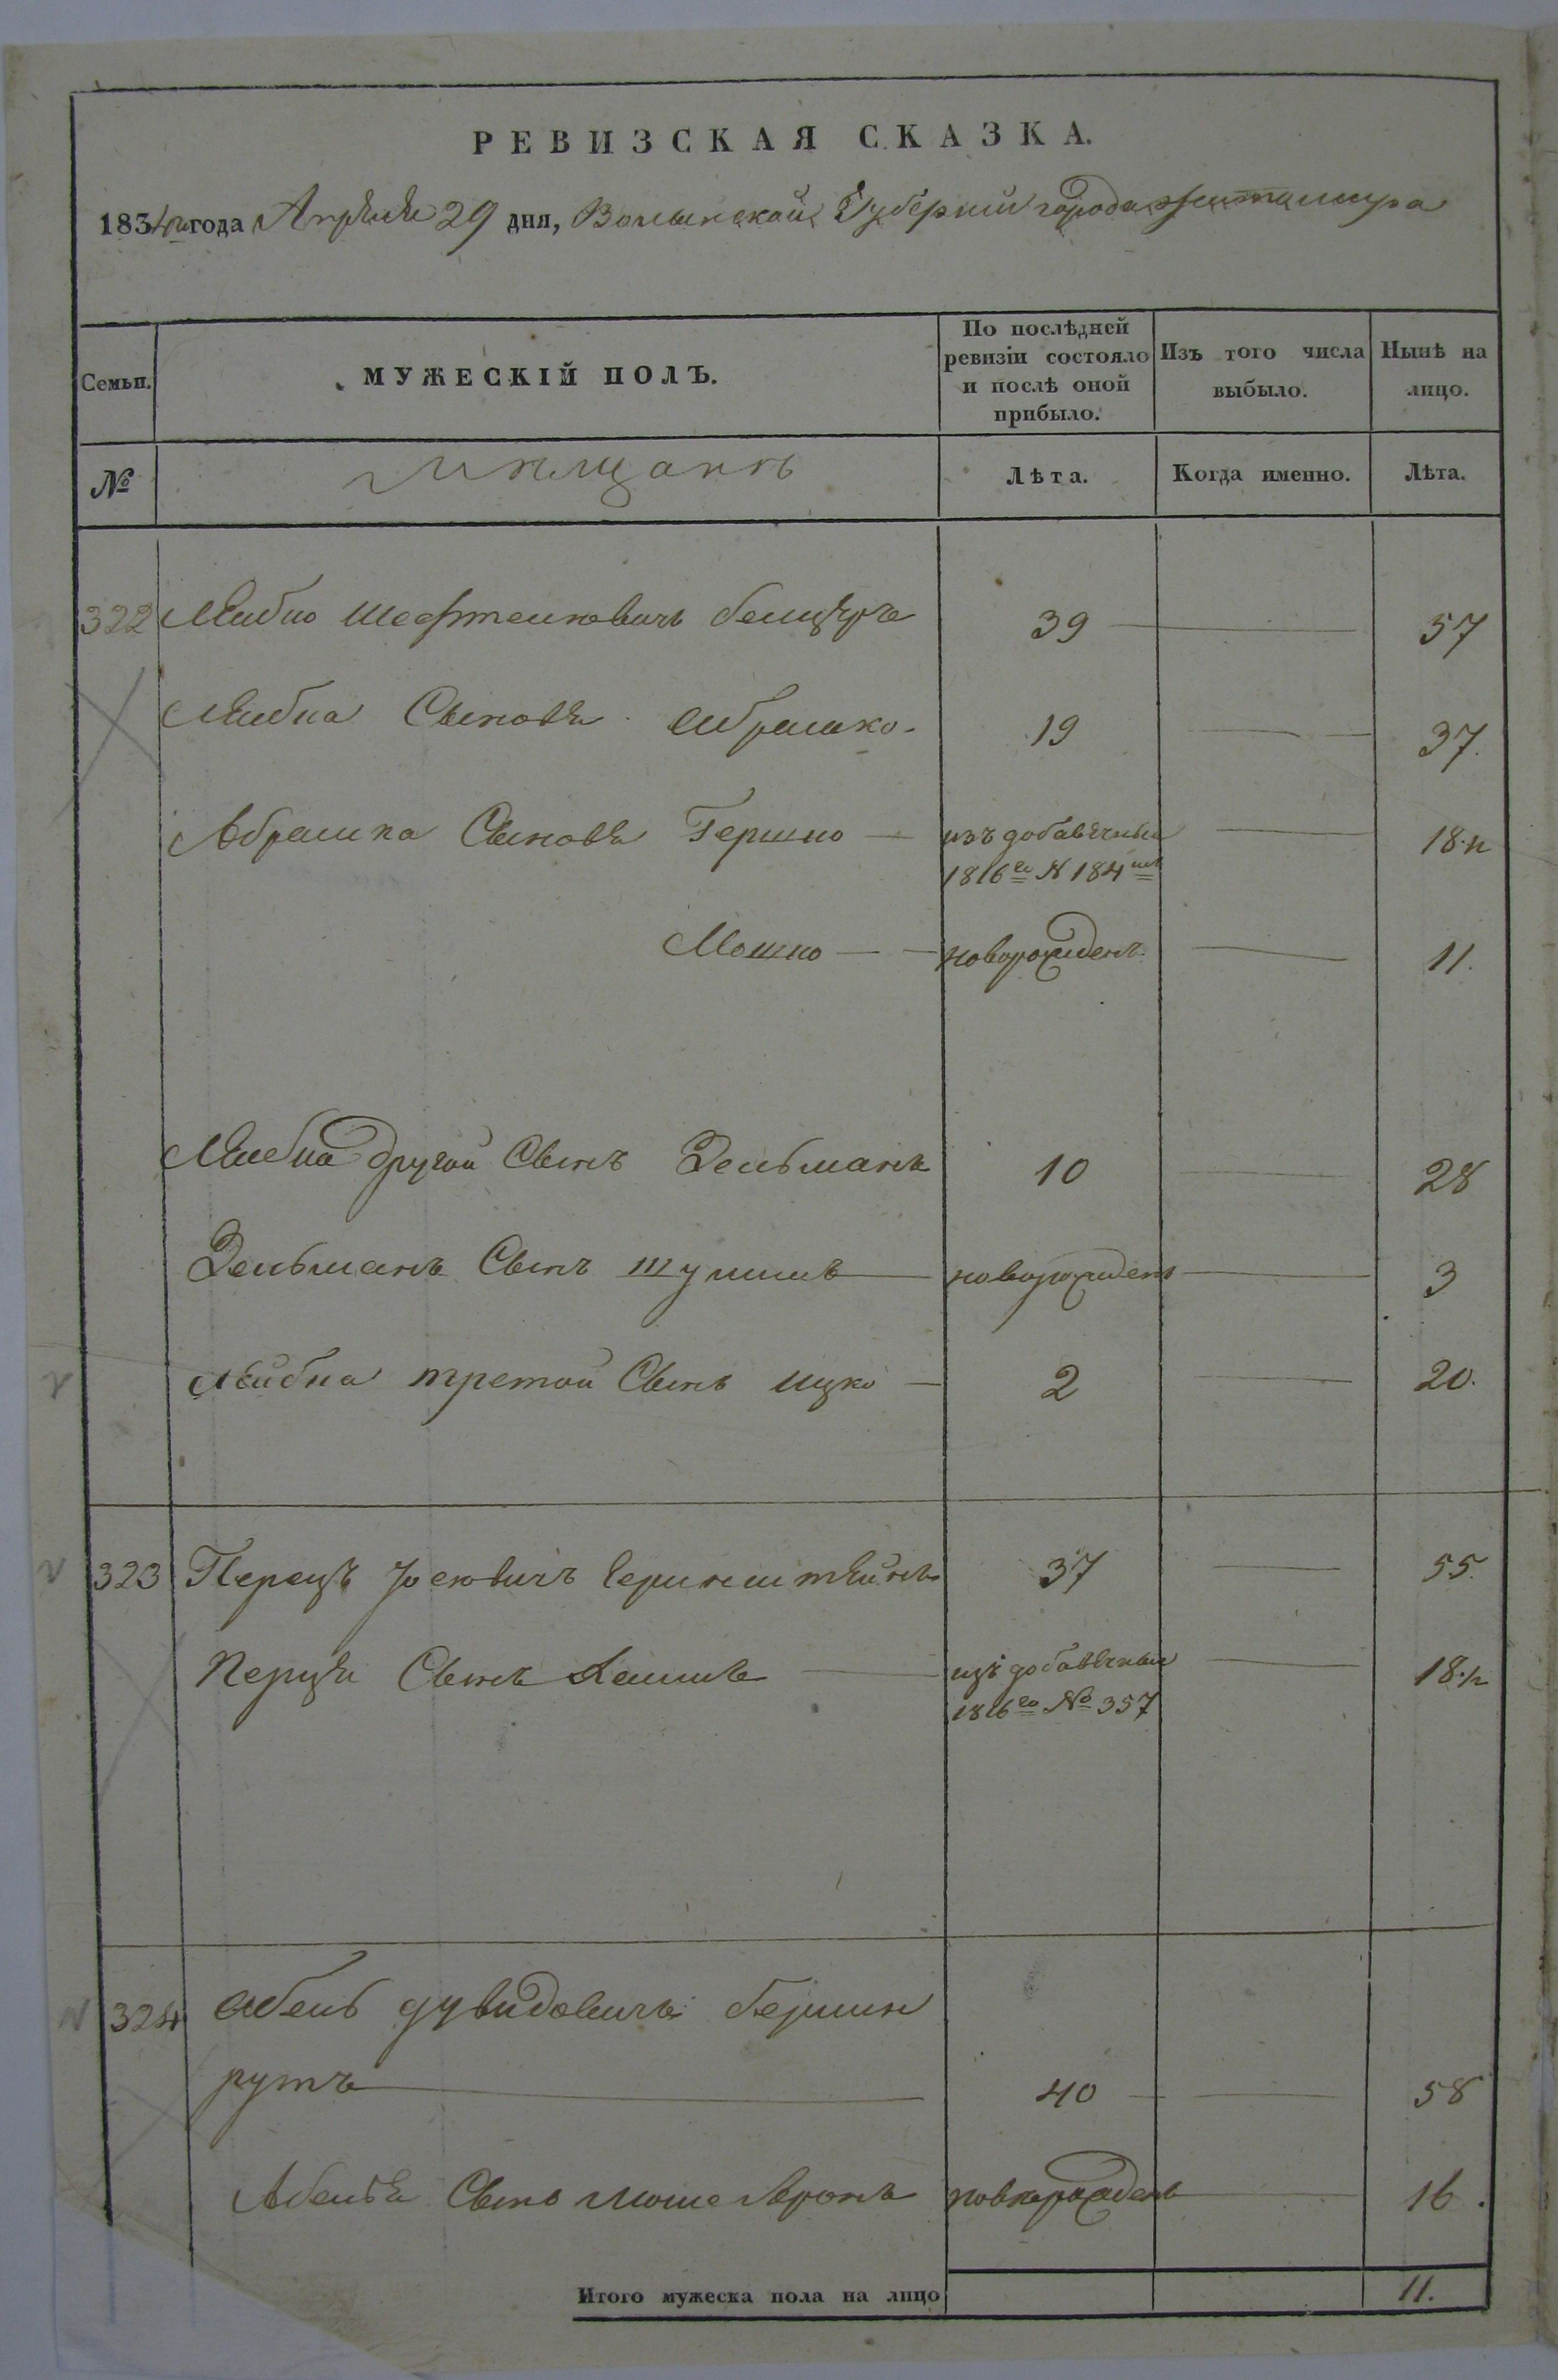 РЕВИЗСКАЯ СКАЗКА.
1834го года Апреля 29 дня, Волынской Губернии города Житомира
Семьи.
МУЖЕСКІЙ ПОЛЪ.
По послѣдней
ревизіи состояло
и послѣ оной
прибыло.
Изъ того числа
выбыло.
Нынѣ на
лицо.
№
мещанъ
Лѣта.
Когда именно.
Лѣта.
322 Лейбко Шефтелювичъ 39 57
Лейбка Сынове Абрамко. 19 37.
Абрамка Сынове Гершко изъ добавочныхъ 18.
1816го № 184
Мошко новорожденъ 11.
Лейбка другой Сынъ Зельманъ 10 28
Зельмана Сынъ Шулимъ новорожденъ 3
Лейбка третой Сынъ Ицко 2 20.
323 Перецъ Іосювичъ 37 55.
Перца Сынъ Хаимъ изъ добавочныхъ 18.
1816го № 357
324 Абель Дувидовичъ
рутъ 40 58
Абеля Сынъ Моше Аронъ новорожденъ 16.
Итого мужеска пола на лицо 11.